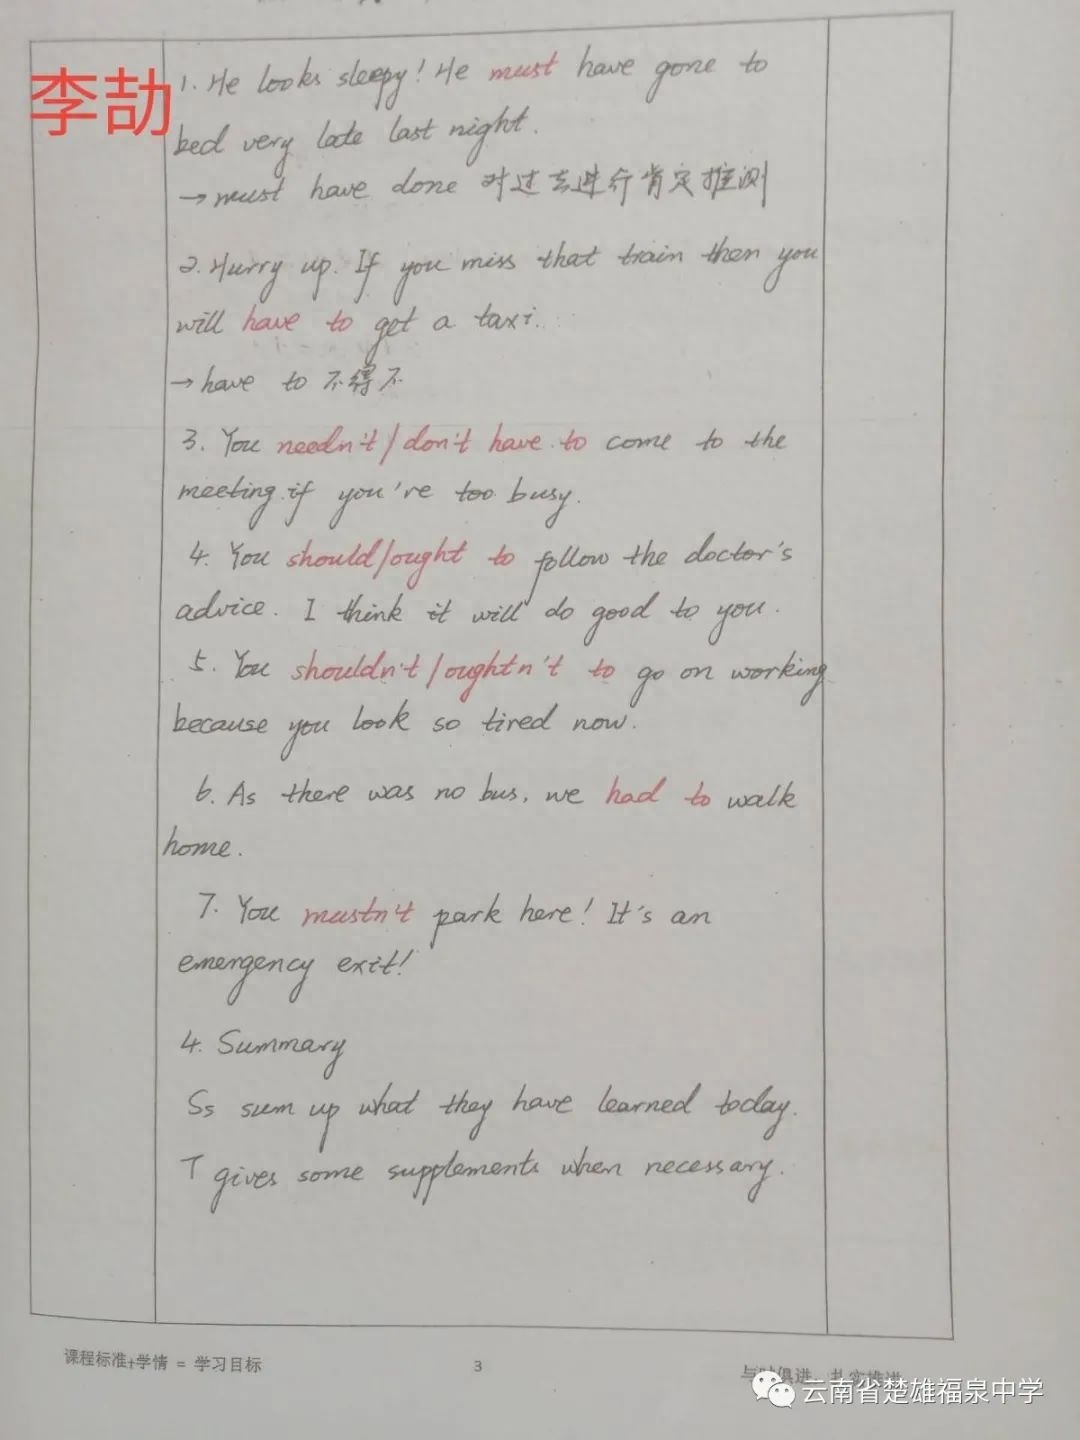 李劼
1. He looks sleepy! He must have gone to
bed very late last night.
→must have done 对过去进行肯定推测
2. Hurry up. If you miss that train then you
will have to get a taxi.
→have to 不得不
3. You needn't/don't have to come to the
meeting if you're too busy.
4. You should/ought to follow the doctor's
advice. I think it will do good to you.
5. You shouldn't/oughtn't to go on working
because you look so tired now.
6. As there was no bus, we had to walk
home.
7. You mustn't park here! It's an
emergency exit!
4. Summary
Ss sum up what they have learned today.
T gives some supplements when necessary.
课程标准+学情 = 学习目标
3
与时俱进 扎实推进
云南省楚雄福泉中学